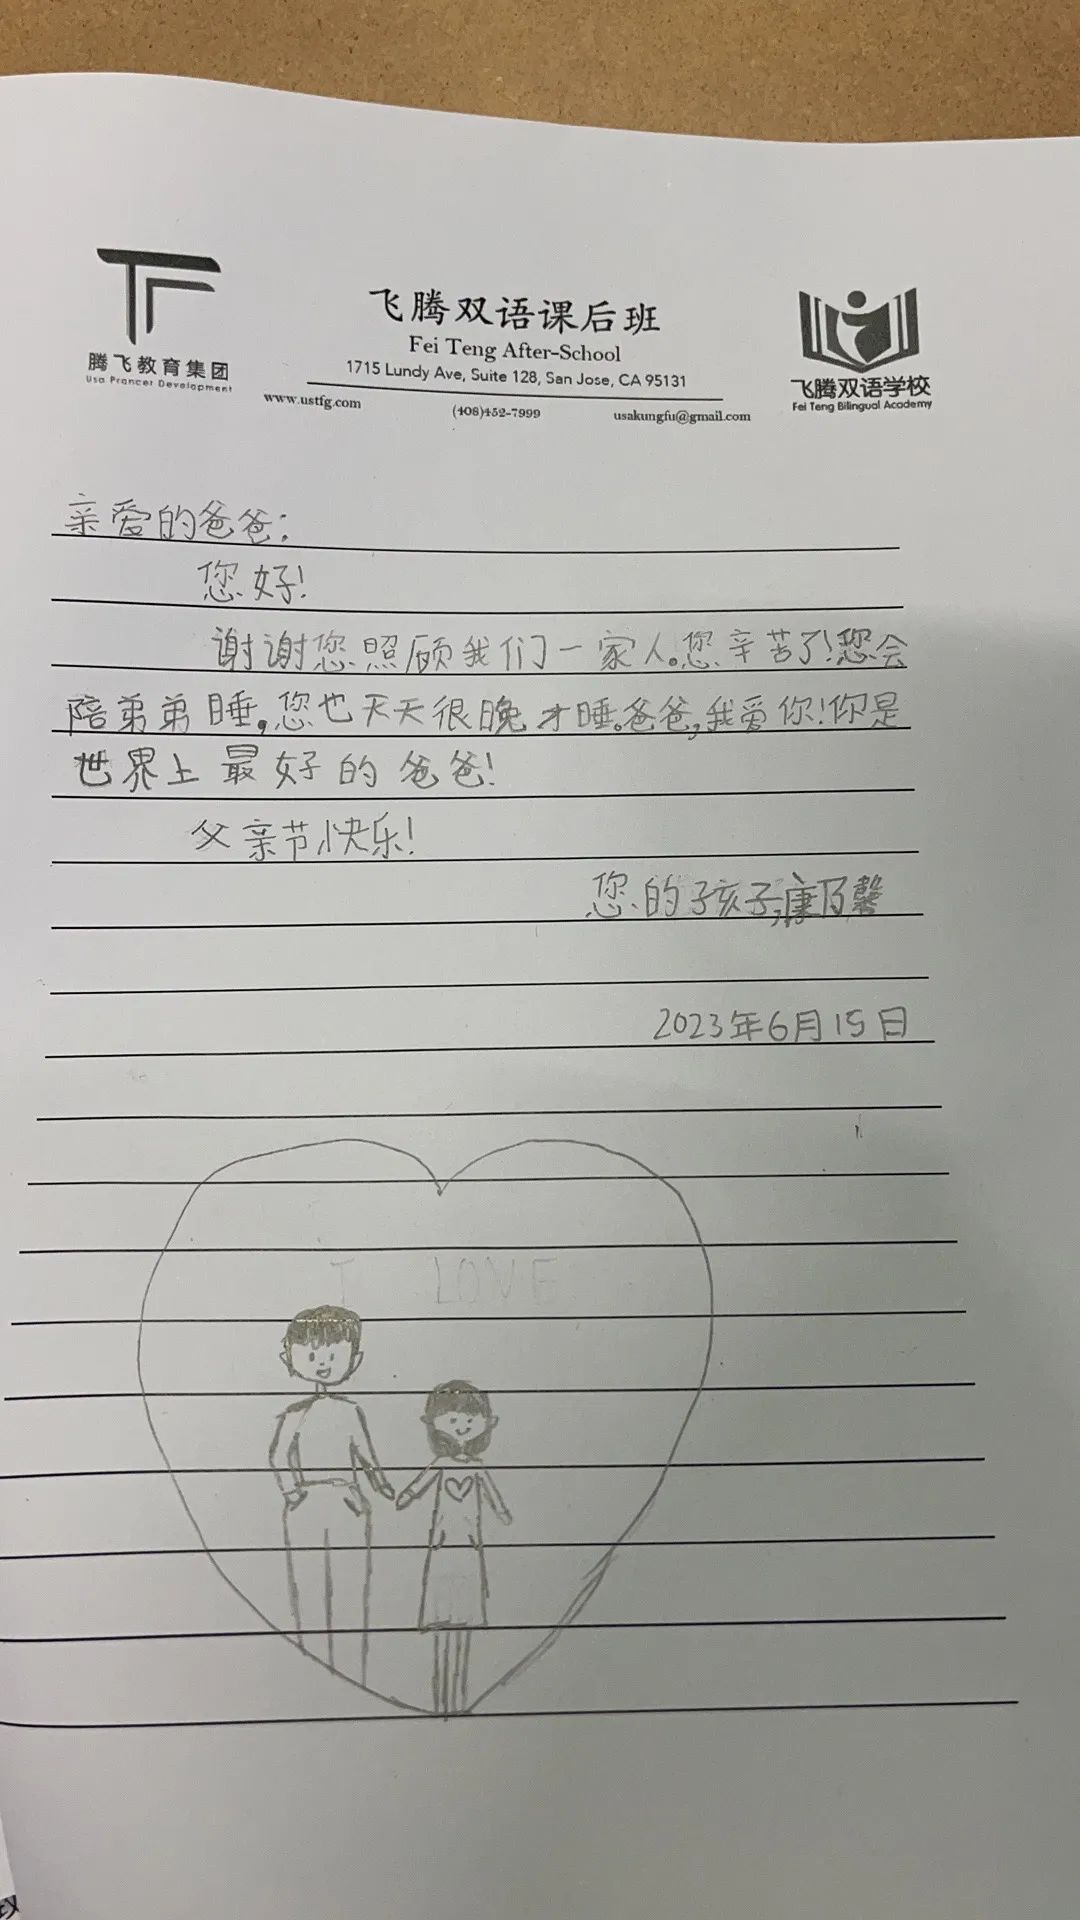 腾飞教育集团
Usa Prancer Development
飞腾双语课后班
Fei Teng After-School
1715 Lundy Ave, Suite 128, San Jose, CA 95131
www.ustfg.com
(408)452-7999
usakungfu@gmail.com
飞腾双语学校
Fei Teng Bilingual Academy
亲爱的爸爸:
您好!
谢谢您照顾我们一家人。您辛苦了!您会
陪弟弟睡。您也天天很晚才睡。爸爸,我爱你!你是
世界上最好的爸爸!
父亲节快乐!
您的孩子,康乃馨
2023年6月15日
I LOVE